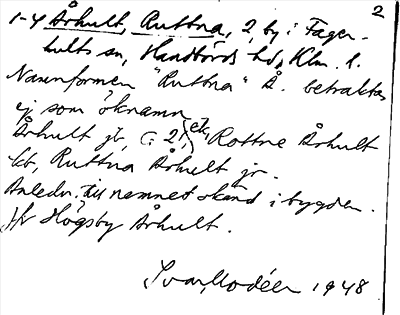 2
1-4 Århult, Ruttna, 2, by i Fager-
hults sn, Handbörds hd, Klm. l.
Namnformen "Ruttna" Å. betraktas
ej som öknamn
Århult jb, (: 2:) etc, Rottne Århult
kb, Ruttna Århult jr.
Anledn. till namnet okänd i bygden.
Jfr Högsby Århult.
Ivar Modéer 1948